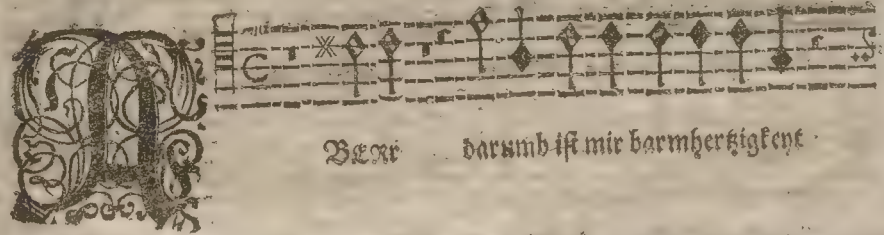 ABER darumb ist mir barmhertzigkeyt